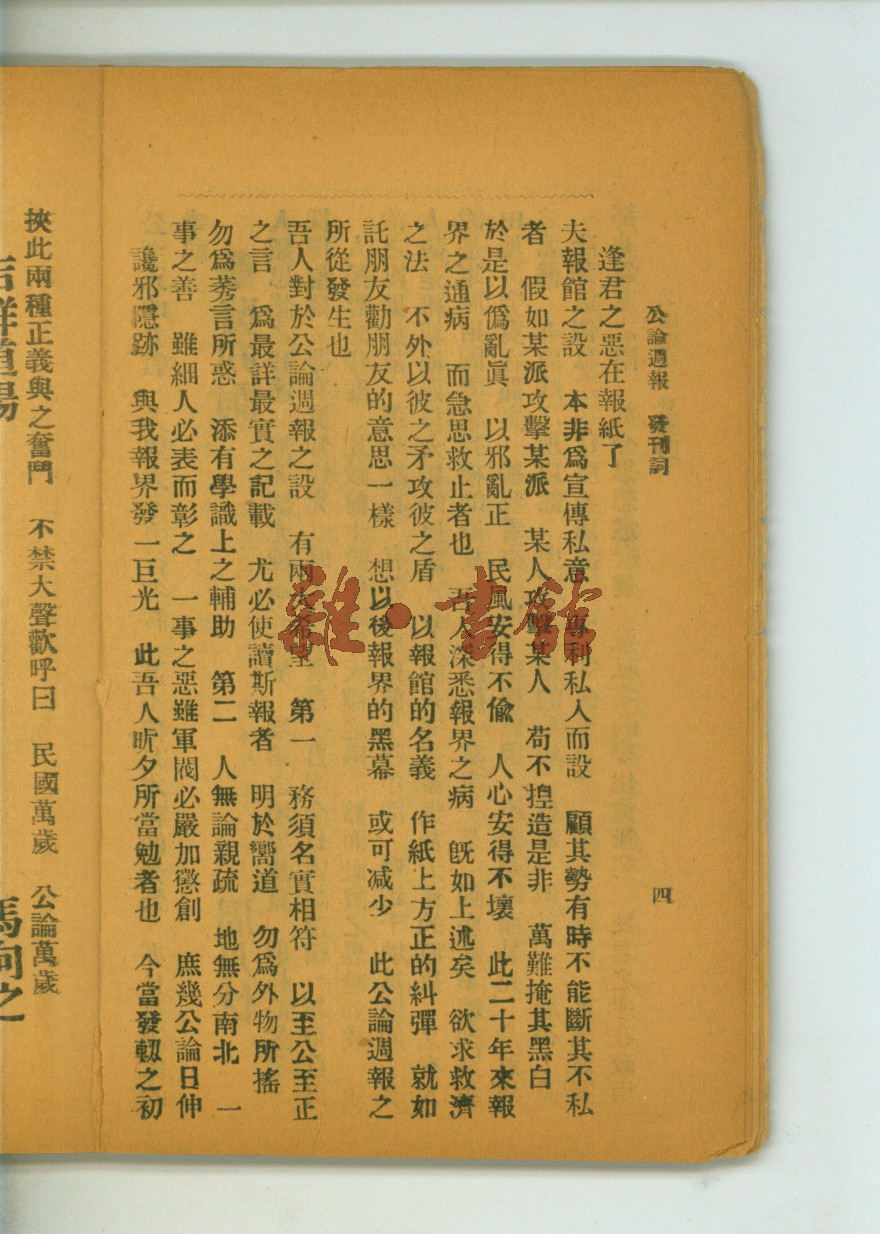 公論週報 發刊詞
四
逢君之惡在報紙了
夫報館之設 本非爲宣傳私意 專利私人而設 顧其勢有時不能斷其不私
者 假如某派攻擊某派 某人攻擊某人 苟不揑造是非 萬難掩其黑白
於是以僞亂眞 以邪亂正 民風安得不偸 人心安得不壞 此二十年來報
界之通病 而急思救止者也 吾人深悉報界之病 旣如上述矣 欲求救濟
之法 不外以彼之矛攻彼之盾 以報館的名義 作紙上方正的糾彈 就如
託朋友勸朋友的意思一樣 想以後報界的黑幕 或可减少 此公論週報之
所從發生也
吾人對於公論週報之設 有兩大希望 第一 務須名實相符 以至公至正
之言 爲最詳最實之記載 尤必使讀斯報者 明於嚮道 勿爲外物所搖
勿爲莠言所惑 添有學識上之輔助 第二 人無論親疏 地無分南北 一
事之善 雖細人必表而彰之 一事之惡雖軍閥必嚴加懲創 庶幾公論日伸
讒邪隱跡 與我報界發一巨光 此吾人昕夕所當勉者也 今當發軔之初
挾此兩種正義與之奮鬥 不禁大聲歡呼曰 民國萬歲 公論萬歲
雜·書館